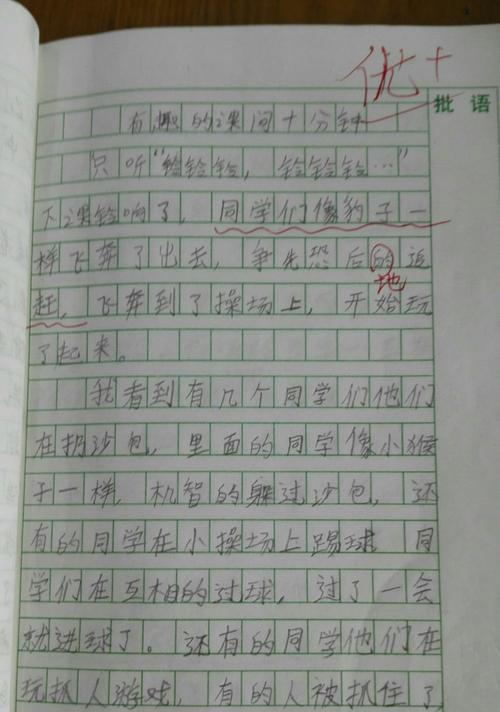 优+
批语
有趣的课间十分钟
只听“铃铃铃，铃铃铃…”
下课铃响了，同学们像豹子一
样飞奔了出去，争先恐后的追
地
赶，飞奔到了操场上，开始玩
了起来。
我看到有几个同学们他们
在扔沙包，里面的同学像小猴
子一样，机智的躲过沙包，还
有的同学在小操场上踢球，同
学们在互相的过球，过了一会
就进球了。还有的同学他们在
玩抓人游戏，有的人被抓住了，